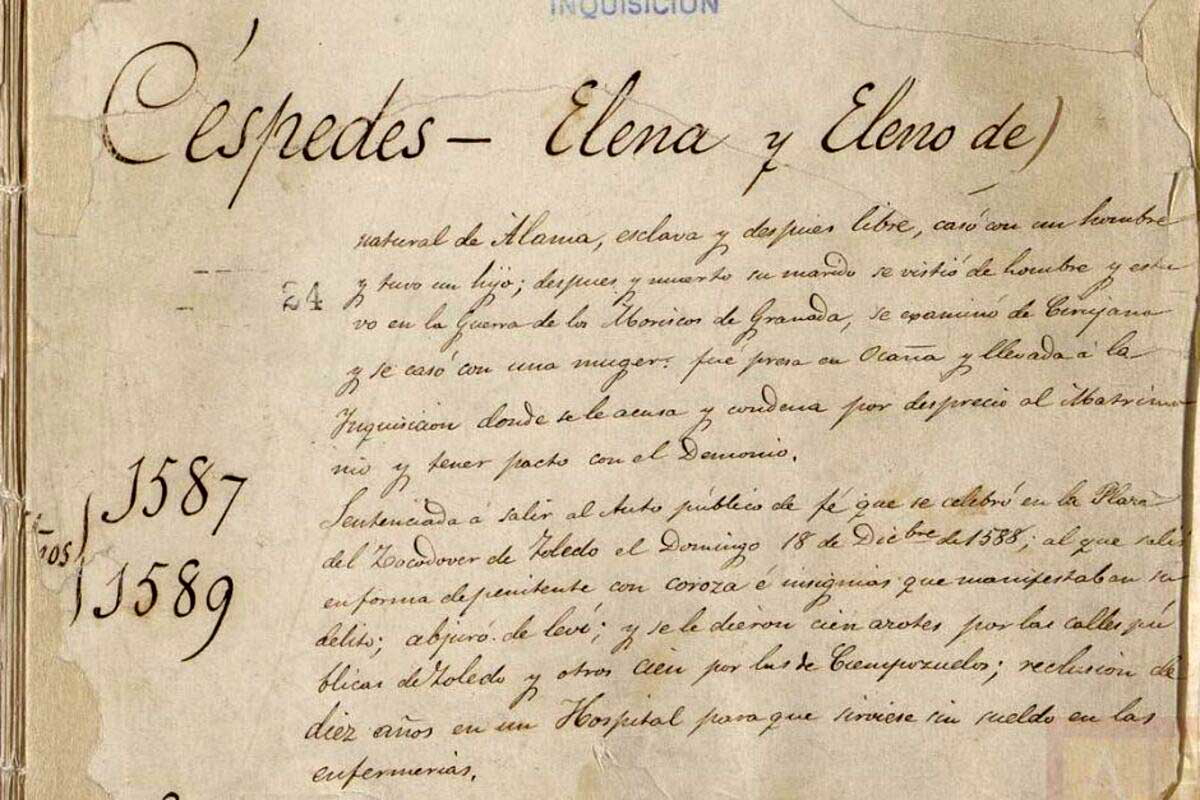 INQUISICION
Céspedes - Elena y Eleno de)
natural de Alama, esclava y despues libre, casó con un hombre
y tuvo un hijo; despues y muerto su marido se vistió de hombre y estu
vo en la Guerra de los Moriscos de Granada, se examinó de Cirujano
24
y se casó con una muger. fue presa en Ocaña y llevada á la
Inquisicion donde se le acusa y condena por desprecio al Matrimo
nio y tener pacto con el Demonio.
Sentenciada á salir al Auto público de fé que se celebró en la Plaza
1587
del Zocodover de Toledo el Domingo 18 de Dicbre de 1588; al que salió
ños
en forma de penitente con coroza é insignias que manifestaban su
1589
delito; abjuró de leví; y se le dieron cien azotes por las calles pú
blicas de Toledo y otros cien por las de Ciempozuelos; reclusion de
diez años en un Hospital para que sirviese sin sueldo en las
enfermerias.